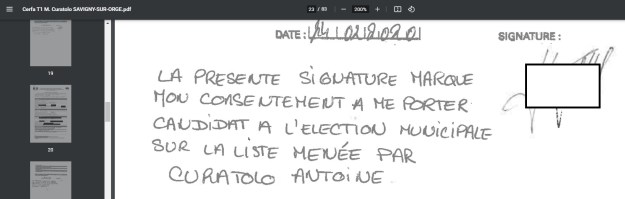 Cerfa T1 M. Curatolo SAVIGNY-SUR-ORGE.pdf
23 / 83
200%
19
20
DATE :
SIGNATURE :
LA PRESENTE SIGNATURE MARQUE
MON CONSENTEMENT A ME PORTER
CANDIDAT A L'ELECTION MUNICIPALE
SUR LA LISTE MENÉE PAR
CURATOLO ANTOINE.